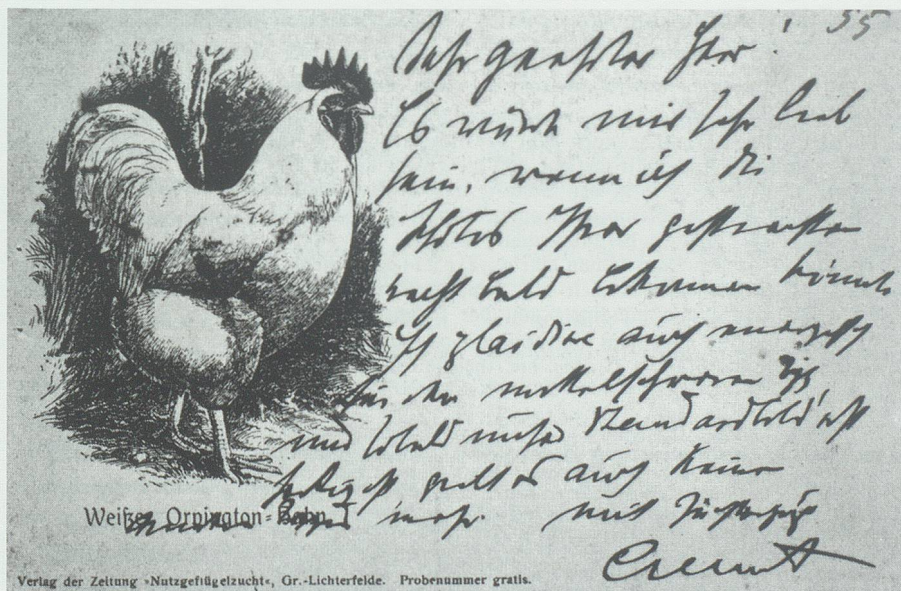 55
Sehr geehrter Herr!
Es würde mir sehr lieb
sein, wenn ich die
Ihrer
recht bald bekommen könnte
Ich plaidire auch energisch
für den mittelschweren Typ,
und sobald unser Standardbild erst
fertig ist giebt es auch keine
mehr. mit
Weißer Orpington-Hahn
Verlag der Zeitung »Nutzgeflügelzucht«, Gr.-Lichterfelde. Probenummer gratis.